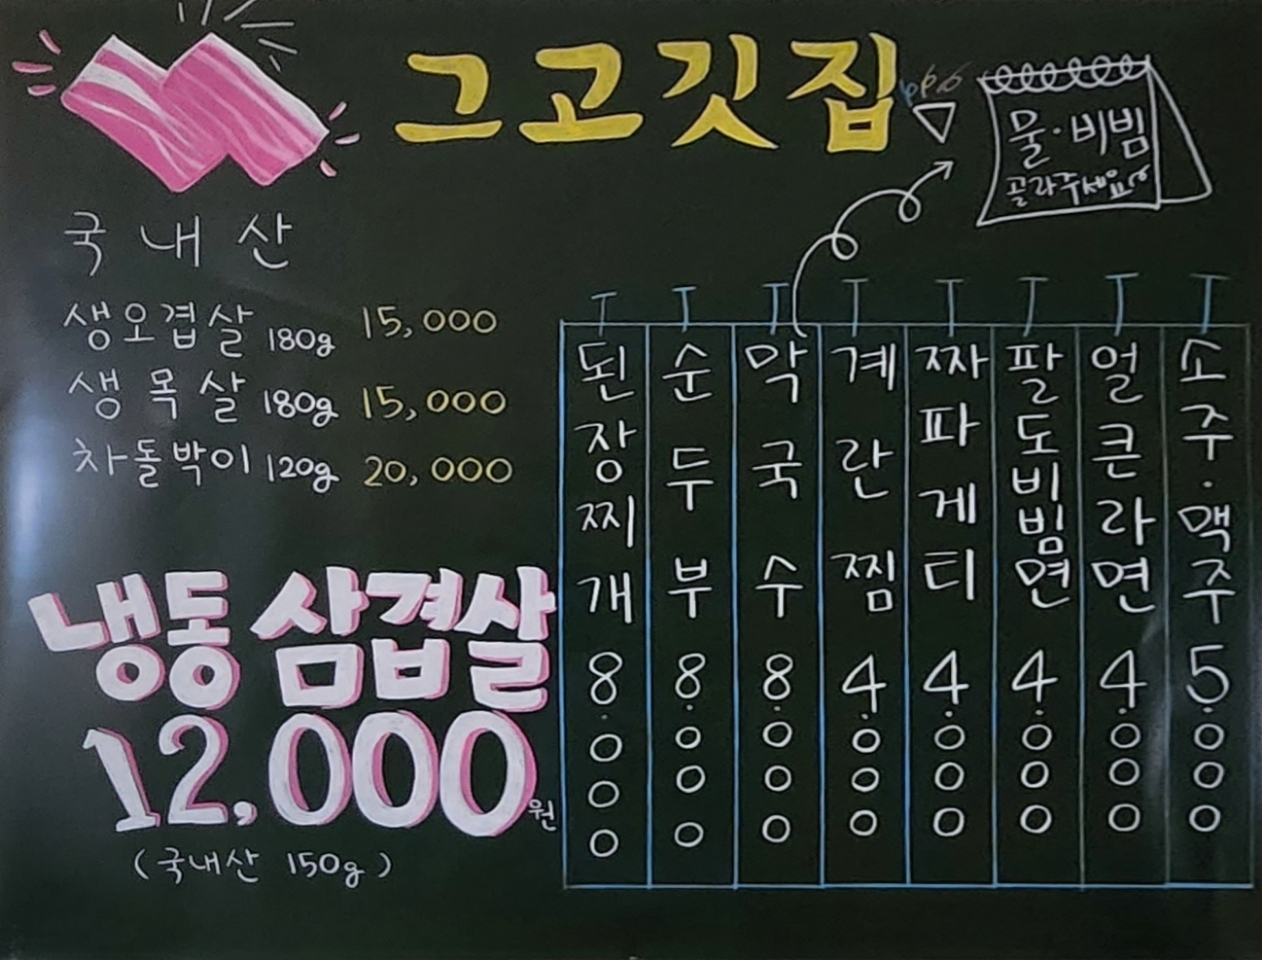 그고깃집
물·비빔
골라주세요
국내산
생오겹살 180g 15,000
생목살 180g 15,000
차돌박이 120g 20,000
냉동 삼겹살
12,000원
(국내산 150g)
된장찌개 8.000
순두부 8.000
막국수 8.000
계란찜 4.000
짜파게티 4.000
팔도비빔면 4.000
얼큰라면 4.000
소주·맥주 5.000